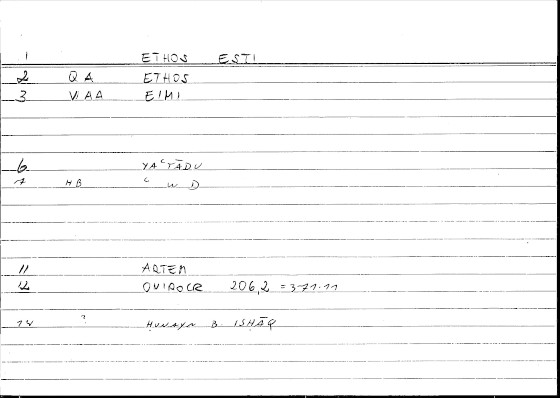 1 ETHOS ESTI
2 QA ETHOS
3 VAA EIMI
6 YAʿTĀDU
7 HB ʿ W D
11 ARTEM
12 OVIROCR 206,2 = 371.11
14 ? ḤUNAYN B ISḤĀQ